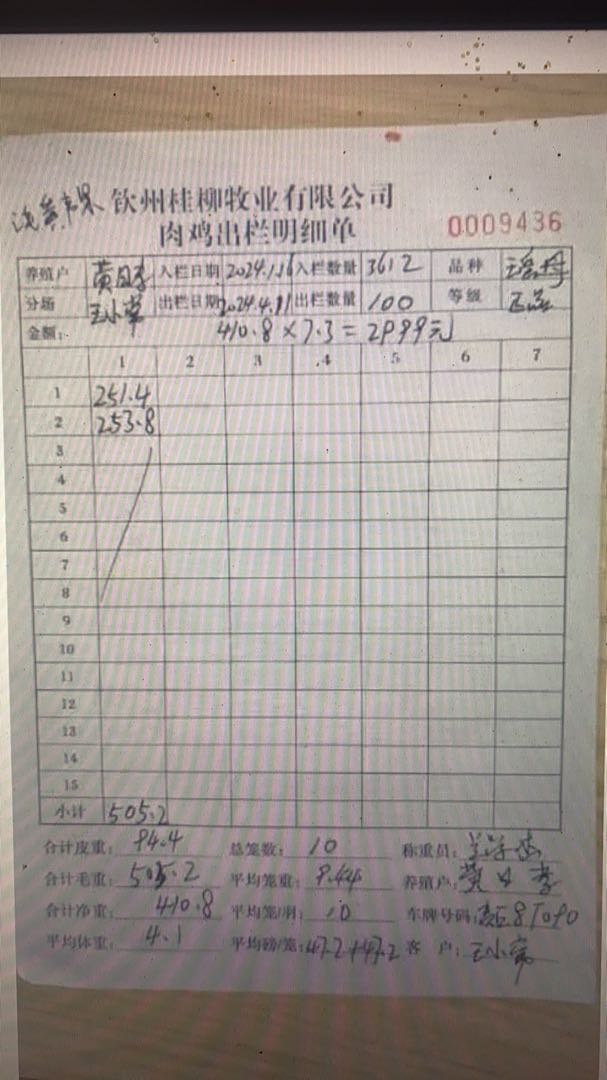 钦州桂柳牧业有限公司
肉鸡出栏明细单 0009436
养殖户 黄日李 入栏日期 2024.1.16 入栏数量 3612 品种
分场 王小常 出栏日期 2024.4.11 出栏数量 100 等级 正品
金额: 410.8×7.3=2999元
1 2 3 4 5 6 7
1 251.4
2 253.8
3
4
5
6
7
8
9
10
11
12
13
14
15
小计 505.2
合计皮重: 94.4 总笼数: 10 称重员:
合计毛重: 505.2 平均笼重: 9.44 养殖户: 黄日李
合计净重: 410.8 平均笼/羽: 10 车牌号码:
平均体重: 4.1 平均磅/笼: 47.2+47.2 客户: 王小常